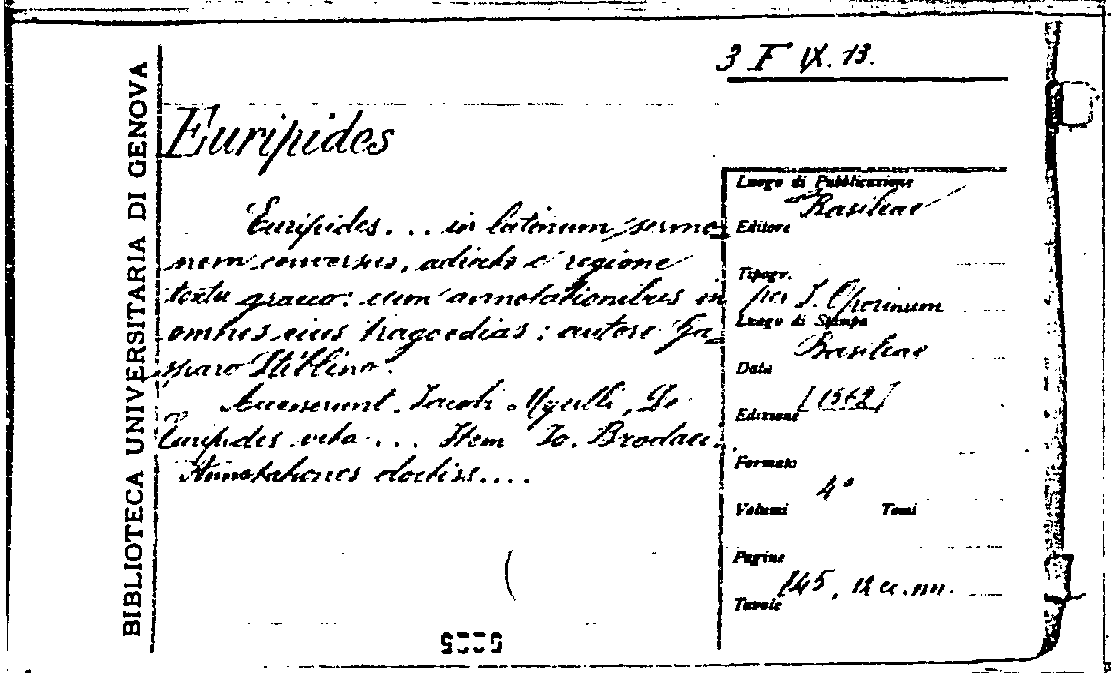 3 F IX. 13.
BIBLIOTECA UNIVERSITARIA DI GENOVA
Euripides
Euripides... in latinum sermo-
nem conversus, adiecto e regione
textu graeco: cum annotationibus in
omnes eius tragoedias: autore Ga-
sparo Stiblino.
Accesserunt, Jacobi Mycilli, De
Euripidis vita... Item Jo. Brodaei.
Annotationes doctiss....
Luogo di Pubblicazione
Basileae
Editore
Tipogr.
per J. Oporinum
Luogo di Stampa
Basileae
Data
[1562]
Edizione
Formato
4°
Volumi Tomi
Pagine
, 12 cc. nn.
Tavole